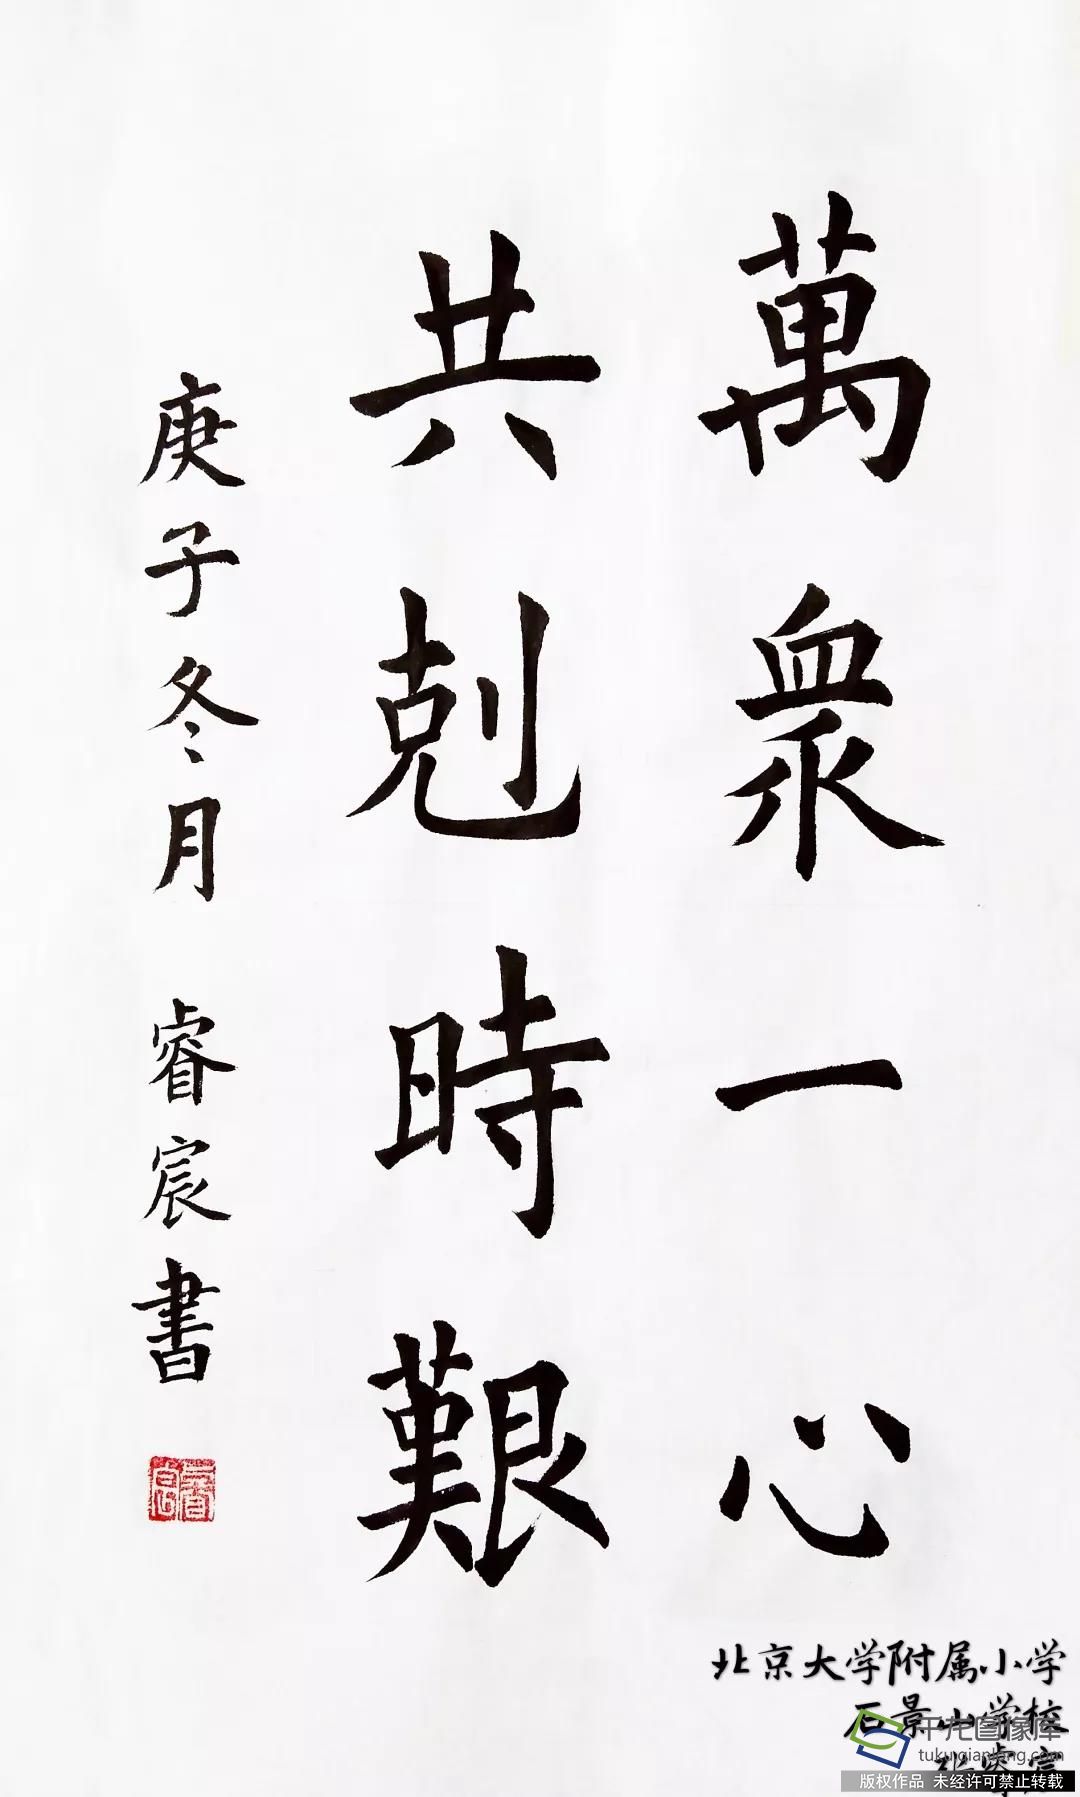 萬衆一心
共剋時艱
庚子冬月 睿宸書
北京大学附属小学
石景山学校
千龙图像库
tuku.qianlong.com
版权作品 未经许可禁止转载